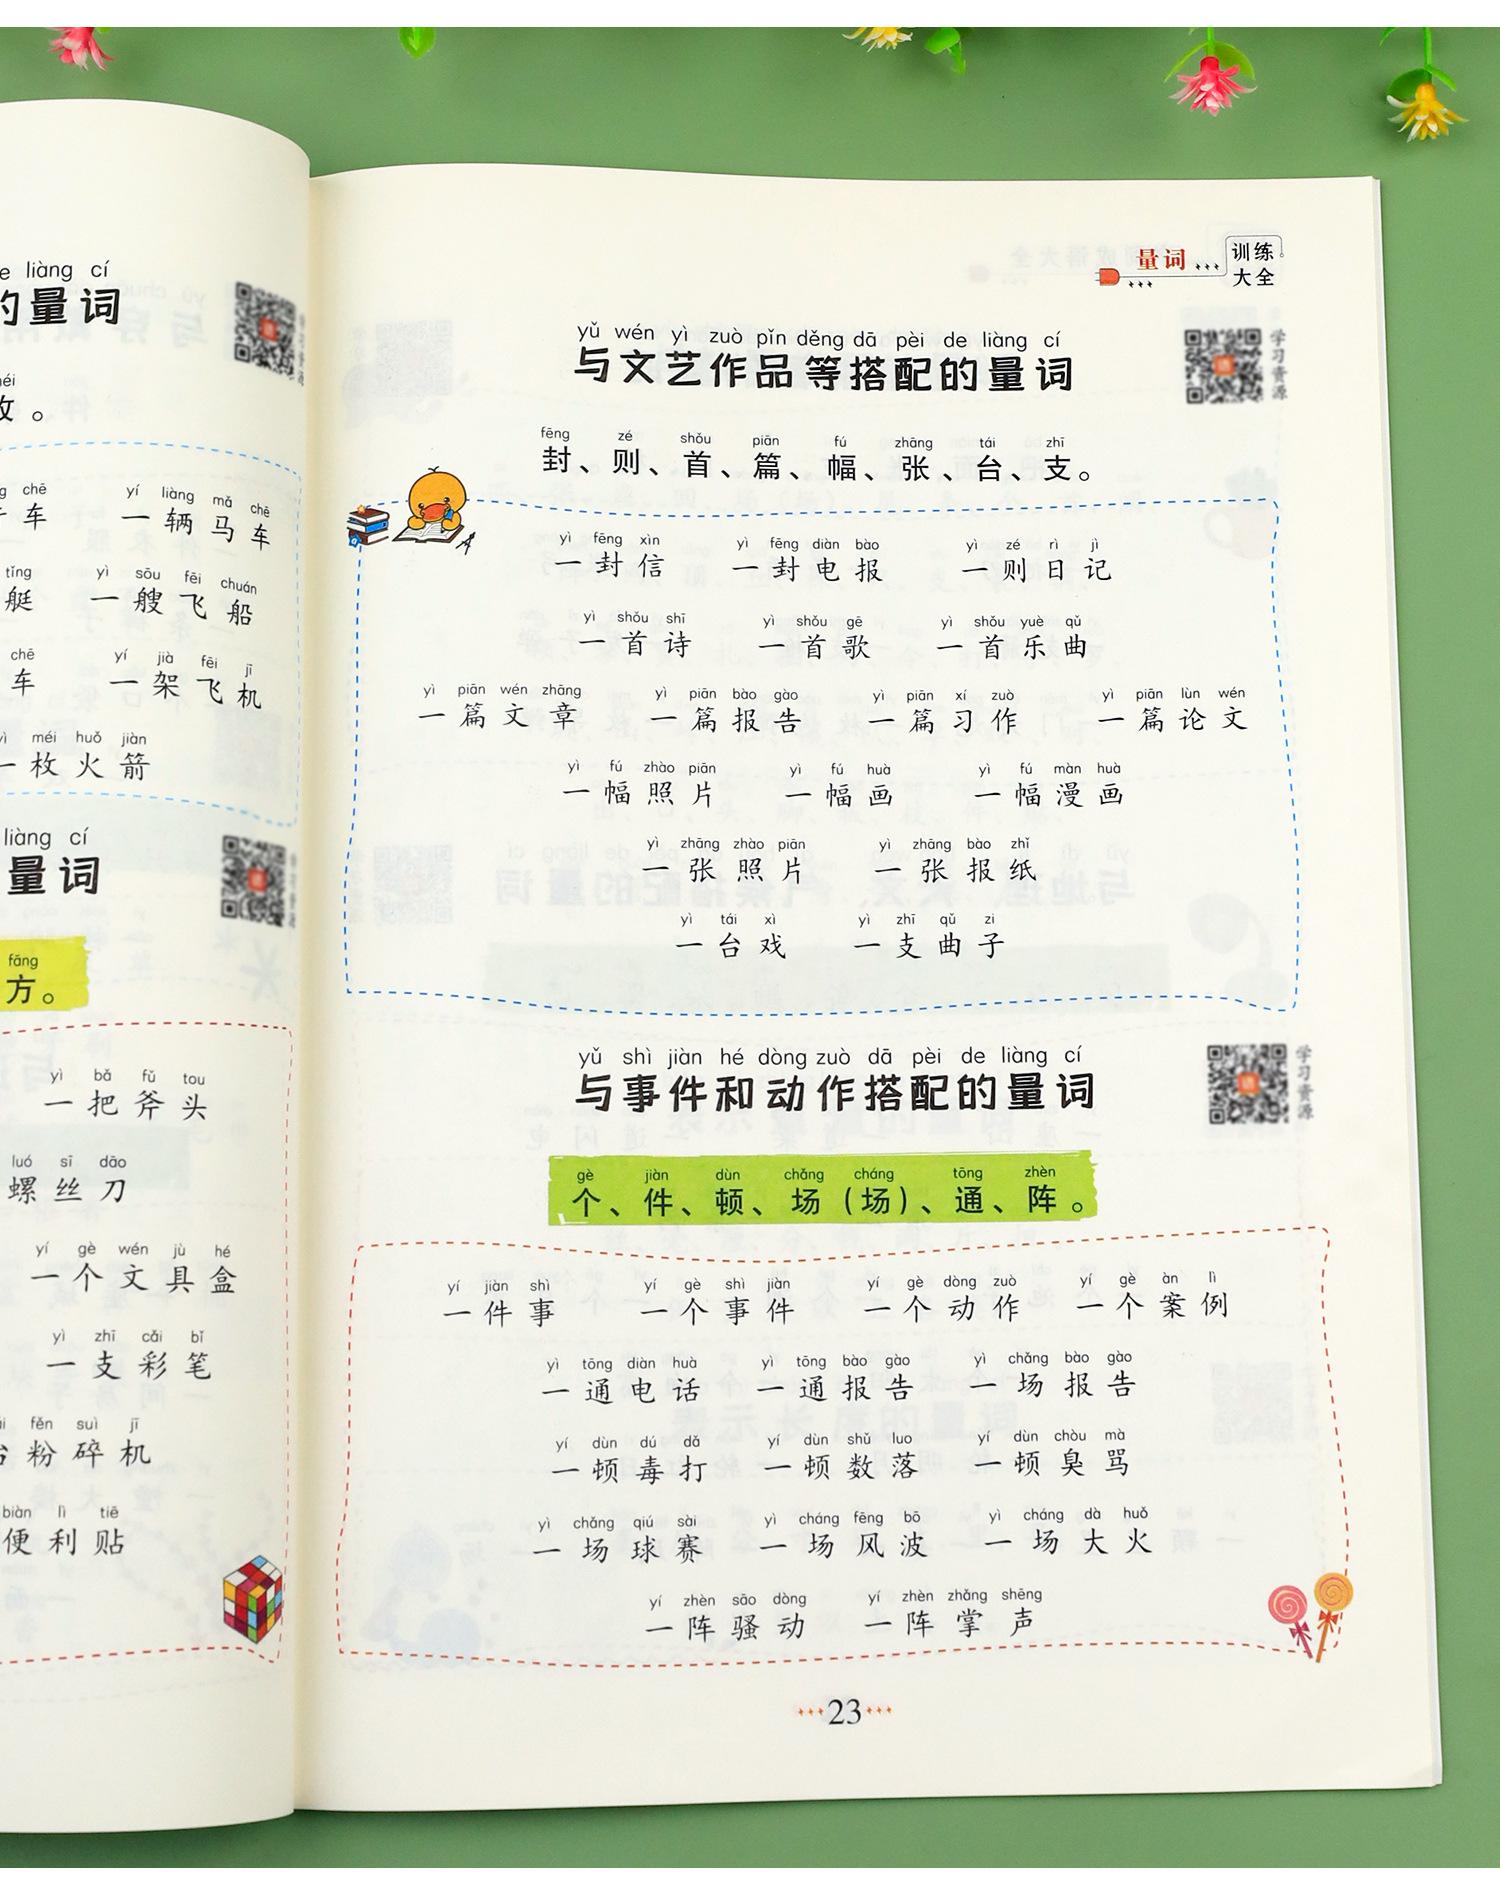 de liàng cí
的量词
车 一辆马车
chē yí liàng mǎ chē
tǐng yì sōu fēi chuán
艇 一艘飞船
chē yí jià fēi jī
车 一架飞机
méi huǒ jiàn
一枚火箭
liàng cí
量词
fāng
方。
yì bǎ fǔ tou
一把斧头
luó sī dāo
螺丝刀
yí gè wén jù hé
一个文具盒
yì zhī cǎi bǐ
一支彩笔
fěn suì jī
粉碎机
biàn lì tiē
便利贴
量词 训练
大全
yǔ wén yì zuò pǐn děng dā pèi de liàng cí
与文艺作品等搭配的量词
学习资源
fēng zé shǒu piān fú zhāng tái zhī
封、则、首、篇、幅、张、台、支。
yì fēng xìn yì fēng diàn bào yì zé rì jì
一封信 一封电报 一则日记
yì shǒu shī yì shǒu gē yì shǒu yuè qǔ
一首诗 一首歌 一首乐曲
yì piān wén zhāng yì piān bào gào yì piān xí zuò yì piān lùn wén
一篇文章 一篇报告 一篇习作 一篇论文
yì fú zhào piān yì fú huà yì fú màn huà
一幅照片 一幅画 一幅漫画
yì zhāng zhào piān yì zhāng bào zhǐ
一张照片 一张报纸
yì tái xì yì zhī qǔ zi
一台戏 一支曲子
yǔ shì jiàn hé dòng zuò dā pèi de liàng cí
与事件和动作搭配的量词
学习资源
gè jiàn dùn chǎng cháng tōng zhèn
个、件、顿、场（场）、通、阵。
yí jiàn shì yí gè shì jiàn yí gè dòng zuò yí gè àn lì
一件事 一个事件 一个动作 一个案例
yì tōng diàn huà yì tōng bào gào yì chǎng bào gào
一通电话 一通报告 一场报告
yí dùn dú dǎ yí dùn shǔ luo yí dùn chòu mà
一顿毒打 一顿数落 一顿臭骂
yì chǎng qiú sài yì cháng fēng bō yì cháng dà huǒ
一场球赛 一场风波 一场大火
yí zhèn sāo dòng yí zhèn zhǎng shēng
一阵骚动 一阵掌声
23